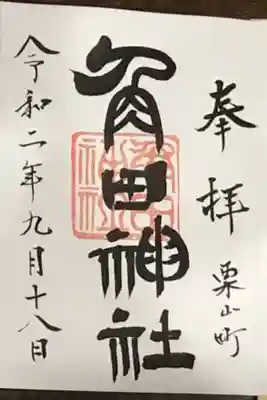 奉拝
栗山町
角田神社
令和二年九月十八日